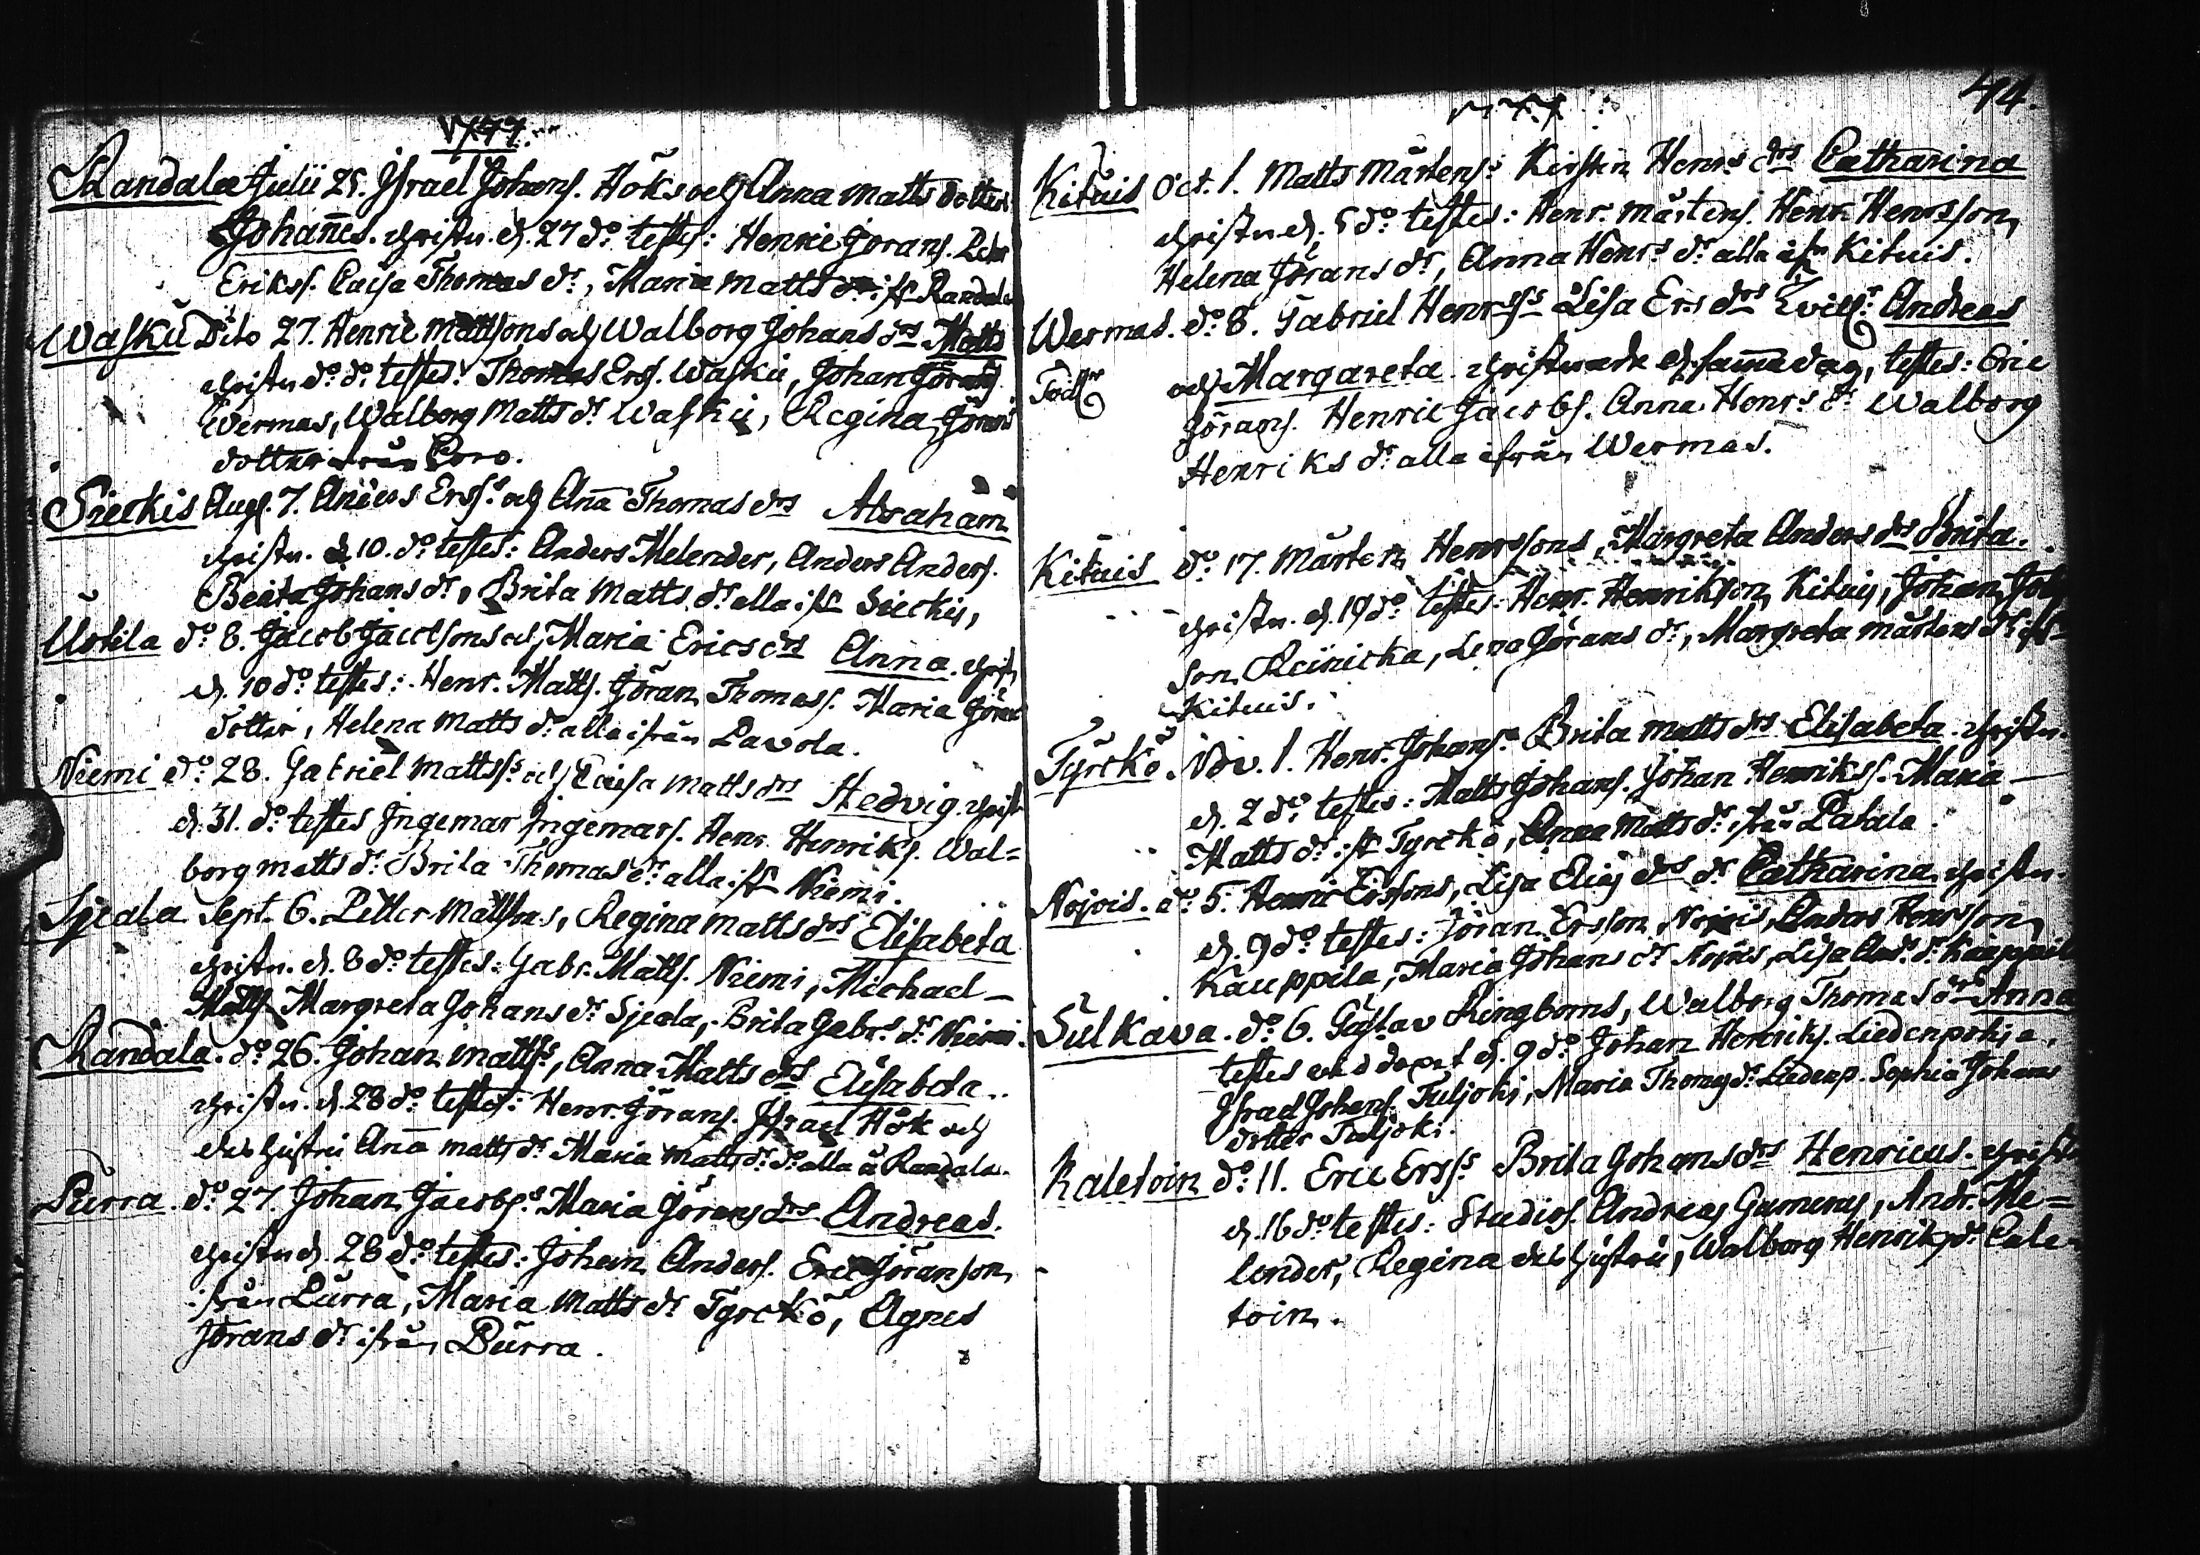 1777.
Randala Julii 25. Israel Johans. Höks och Anna Matts dotters
Johañes. christn. d. 27 do testes: Henric Jörans. Peter
Erikss. Caisa Thomas dr, Maria Matts dr ifr Randala
Wasku Dito 27. Henric Mattssons och Walborg Johans drs Matts
christn do do testes: Thomas Erss. Wasku, Johan Jörans
Wermas, Walborg Matts dr Wasku, Regina Jörans
dotter ifrån Poro.
Sierkis Aug. 7. Anders Erss. och Aña Thomas drs Abraham
christn. d 10. do testes: Anders Melender, Anders Anders.
Beata Johans dr, Brita Matts dr alla ifr Sierkis,
Uotila do 8. Jacob Jacobsons och Maria Erics drs Anna. christ
d. 10 do testes: Henr. Matts. Jöran Thomass. Maria Görans
dotter, Helena Matts dr alla ifrån Pavola.
Niemi do 28. Gabriel Mattss. och Caisa Matts drs Hedvig. christ
d. 31. do testes Ingemar Ingemars. Henr. Henriks. Wal=
borg Matts dr Brita Thomas dr alla ifr Niemi.
Sjeala Sept. 6. Petter Mattsons, Regina Matts drs Elisabeta
christn. d. 8 do testes: Gabr. Matts. Niemi, Michael
Matts. Margreta Johans dr Sjeala, Brita Gabrs dr Niemi.
Randala. do 26. Johan Matts., Anna Matts drs Elisabeta.
christn. d. 28 do testes: Henr. Jörans. Israel Hök och
des hustru Aña Matts dr Maria Matts dr do alla å Randala.
Purra. do 27. Johan Jacobs. Maria Jörans drs Andreas.
christn d. 28 do testes: Johan Anders. Eric Jöranson
ifrån Purra, Maria Matts dr Tyrckö, Agnes
Jörans dr ifrån Purra.
1777
44.
Kituis Oct. 1. Matts Mårtens. Kirstin Henrs drs Catharina
christn. d. 5 do testes: Henr. Mårtens. Henr. Henrsson,
Helena Jörans dr, Anna Henrs dr alla ifr Kituis.
Wermas. do 8. Gabriel Henrss. Lisa Ers drs Tvill. Andreas
och Margareta christnade d. sam̃a dag, testes: Eric
Jörans. Henric Jacobs. Anna Henrs dr Walborg
Henriks dr alla ifrån Wermas.
Kituis do 17. Mårten Henrssons, Margreta Anders drs Brita.
christn. d. 19 do testes: Henr. Henrikson Kituis, Johan Johan
son Reinicka, Lena Jörans dr, Margreta Mårtens dr ifr
Kituis.
Tyrckö. Nov. 1. Henr. Johans. Brita Matts drs Elisabeta christn.
d. 2 do testes: Matts Johans. Johan Henrikss. Maria
Matts dr ifr Tyrckö, Anna Matts dr ifrån Patala.
Nojois. do 5. Henric Erssons, Lisa Elias drs dr Catharina christn.
d. 9 do testes: Jöran Ersson Nojois, Anders Henrsson
Kauppila, Maria Johans dr Nojois, Lisa And. dr Kauppila
Sulkava. do 6. Gustav Ringboms, Walborg Thomas drs Anna
testes vid dopet d. 9 do Johan Henriks. Liedenpohja,
Israel Johans. Tuljoki, Maria Thomas dr Liedenp. Sophia Johans
dotter Tuljoki.
Kaletoin do 11. Eric Erss. Brita Johans drs Henricus. christn
d. 16 do testes: Studios. Andreas Gumerus, Andr. Me=
lender, Regina des hustru, Walborg Henriks dr Cale-
toin.